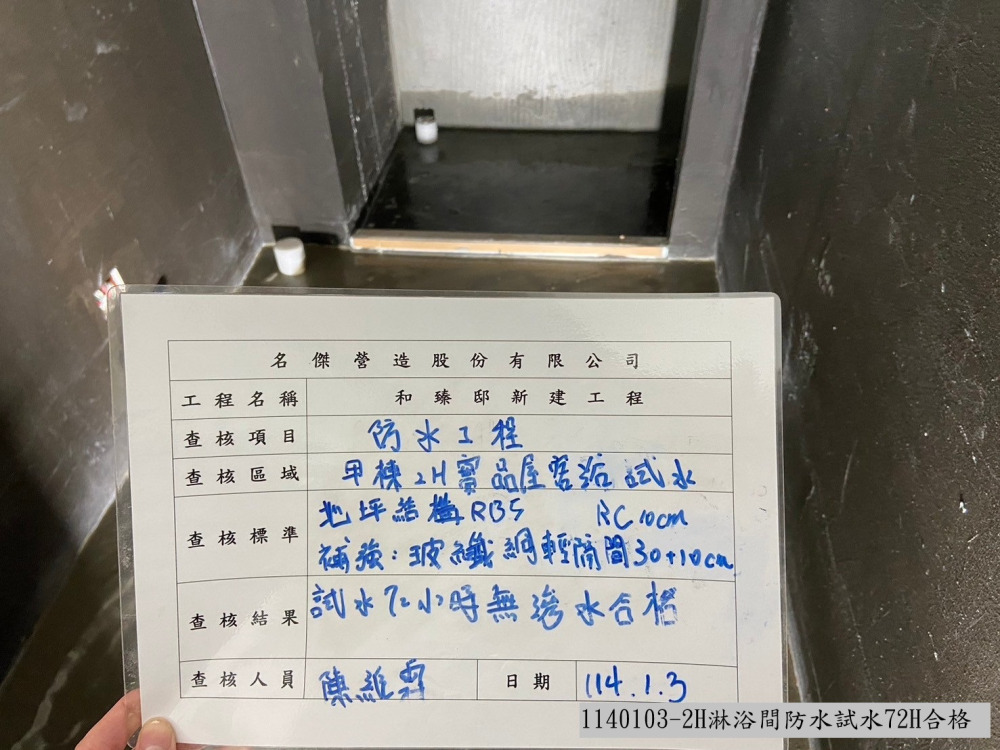 名傑營造股份有限公司
工程名稱 和臻邸新建工程
查核項目 防水工程
查核區域 甲棟2H實品屋客浴 試水
查核標準 地坪結構RBS RC10cm
補強:玻纖網輕隔間30+10cm
查核結果 試水72小時無滲水合格
查核人員 陳維 日期 114.1.3
1140103-2H淋浴間防水試水72H合格